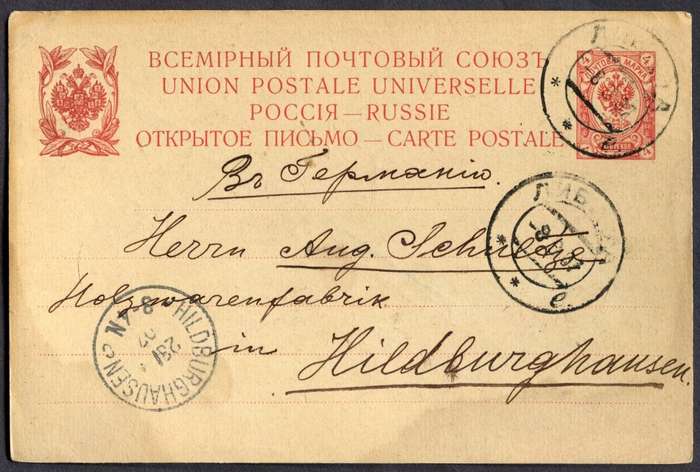 ВСЕМІРНЫЙ ПОЧТОВЫЙ СОЮЗЪ
UNION POSTALE UNIVERSELLE
РОССІЯ—RUSSIE
ОТКРЫТОЕ ПИСЬМО—CARTE POSTALE
Въ Германію.
Herrn Aug.
Holzwarenfabrik
in Hildburghausen
ЛИБАВА
е.
HILDBURGHAUSEN
8-9 N